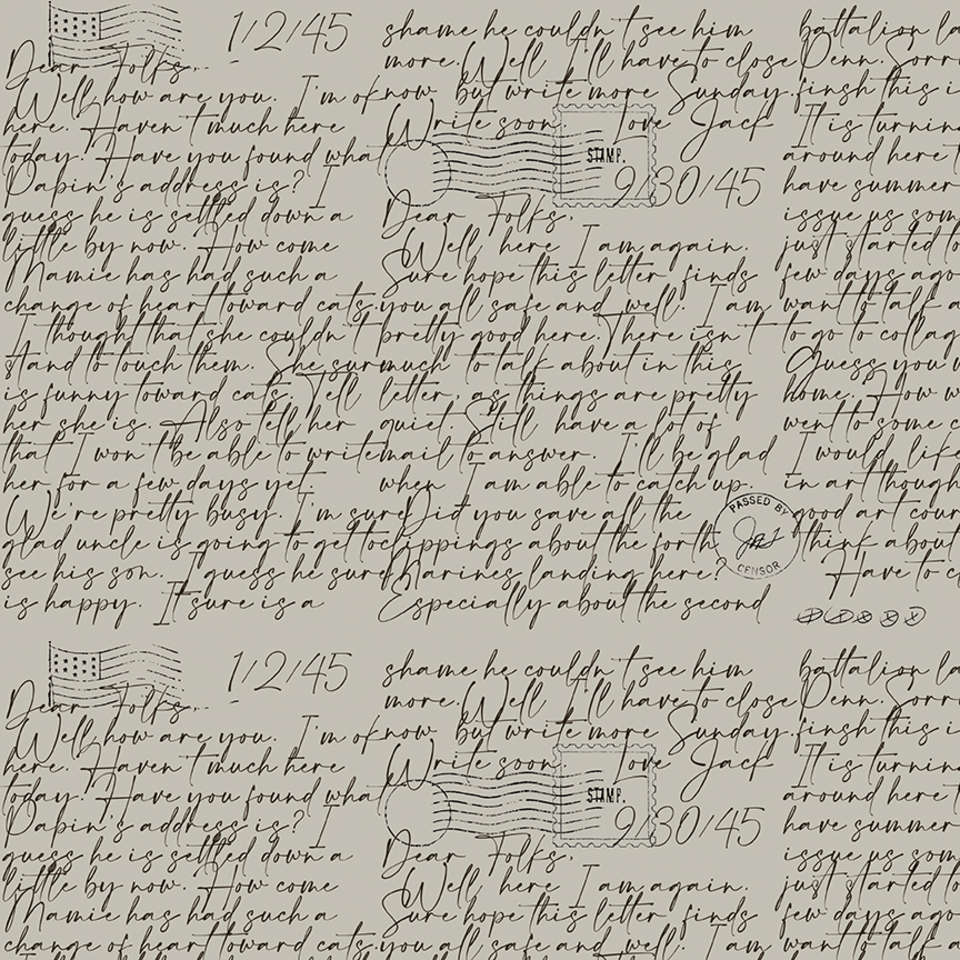 1/2/45
Dear Folks,
Well, how are you. I'm ok
here. Haven't much here
today. Have you found what
Dapin's address is? I
guess he is settled down a
little by now. How come
Mamie has had such a
change of heart toward cats.
I thought that she couldn't
stand to touch them. She sur
is funny toward cats. Tell
her she is. Also tell her
that I won't be able to write
her for a few days yet.
We're pretty busy. I'm sure
glad uncle is going to get to
see his son. I guess he sure
is happy. It sure is a
shame he couldn't see him
more. Well I'll have to close
now but write more Sunday.
Write soon. Love Jack
STAMP.
9/30/45
Dear Folks,
Well here I am again.
Sure hope this letter finds
you all safe and well. I am
pretty good here. There isn't
much to talk about in this
letter, as things are pretty
quiet. Still have a lot of
mail to answer. I'll be glad
when I am able to catch up.
Did you save all the
clippings about the forth
Marines landing here?
Especially about the second
PASSED BY
CENSOR
battalion la
Penn. Sorr
finsh this i
It is turnin
around here t
have summer
issue us som
just started to
few days ago
want to talk a
to go to collag
Guess you w
home. How w
went to some c
I would like
in art though
good art cour
think about
Have to c
1/2/45
Dear Folks,
Well, how are you. I'm ok
here. Haven't much here
today. Have you found what
Dapin's address is? I
guess he is settled down a
little by now. How come
Mamie has had such a
change of heart toward cats.
shame he couldn't see him
more. Well I'll have to close
now but write more Sunday.
Write soon. Love Jack
STAMP.
9/30/45
Dear Folks,
Well here I am again.
Sure hope this letter finds
you all safe and well. I am
battalion la
Penn. Sorr
finsh this i
It is turnin
around here t
have summer
issue us som
just started to
few days ago
want to talk a